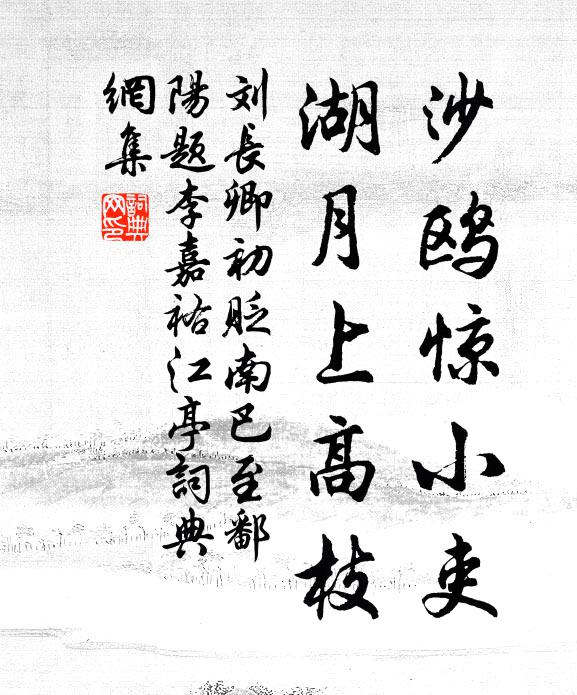 沙鸥惊小吏
湖月上高枝
刘長卿初貶南巴至鄱
陽题李嘉祐江亭詞典
網集
詞典網印